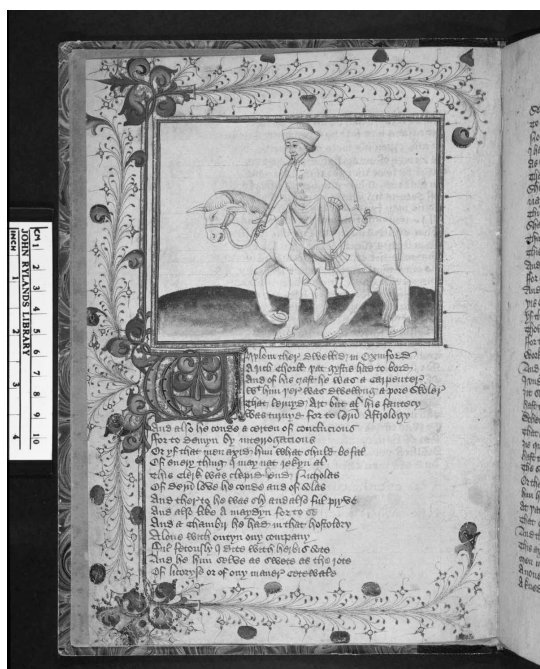 CM 1 2 3 4 5 6 7 8 9 10
JOHN RYLANDS LIBRARY
INCH 1 2 3 4
ylom ther dwellid in Oxinford
A rich chorle þat gystis had to bord
And of his craft he was a carpenter
Wt him þer was dwelling a pore scoler
That lernyd Art but al his fantasy
Was turnyd for to lern Astrology
And also he conde a certen of conclucions
For to demyn by interrogations
Or yf that men axid him what shuld be fal
Of every thing I may not rekyn al
This clerk was clepid hend Nicholas
Of dern love he conde and of solas
And therto he was sly and also ful pryve
And also like a maydyn for to se
And a chambir he had in that hostolry
Alone with outyn ony company
Ful fetously I dite with herbis sote
And he him selve as swete as the rote
Of licoryse or of ony maner cetewale